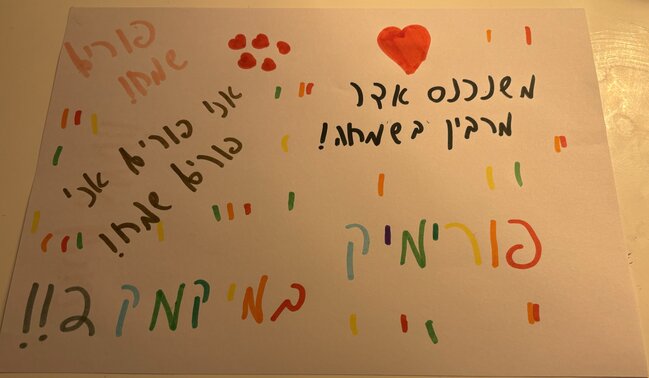 פורים
שמח!
משנכנס אדר
מרבין בשמחה!
אני פורים אני
פורים שמח!
פורימיק
במיקמק 2!!